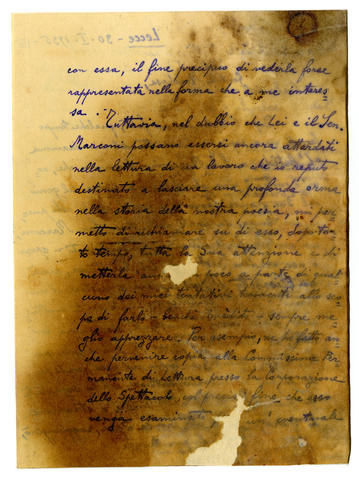 Lecce - 30 - I - 1935 -
con essa, il fine precipuo di vederla forse
rappresentata nella forma che a me interes-
sa. Tuttavia, nel dubbio che Lei e il Sen.
Marconi possano essersi ancora attardati
nella lettura di un lavoro che io reputo
destinato a lasciare una profonda orma
nella storia della nostra poesia, mi per-
metto di richiamare su di esso, dopo tan-
to tempo, tutta la Sua attenzione e di
metterla poco a parte di qual
cuno dei miei tentativi tendenti allo sco-
po di farlo - benchè inedito - sempre me-
glio apprezzare. Per esempio, ne ho fatto an-
che pervenire copia alla Commissione Per-
manente di Lettura presso la Corporazione
dello Spettacolo, col preciso fine, che esso
venga esaminato eventuale